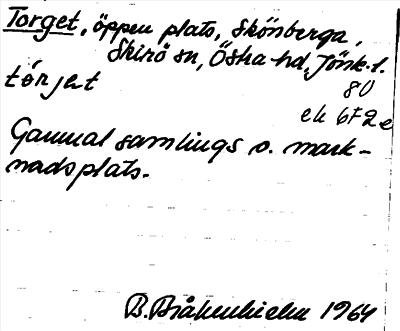 Torget, öppen plats, Skönberga,
Skirö sn, Östra hd, Jönk. l.
tórjet
8U
ek 6F2e
Gammal samlings o. mark-
nadsplats.
B. Bråkenhielm 1964